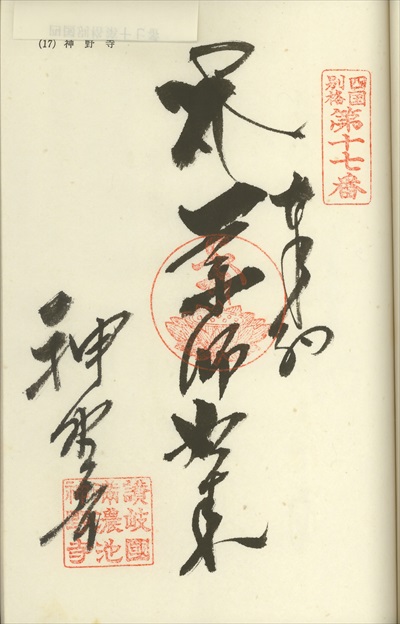 (17) 神野寺
四國
別格
第十七番
奉納
薬師如来
神野寺
讃岐國
満濃池
神野寺